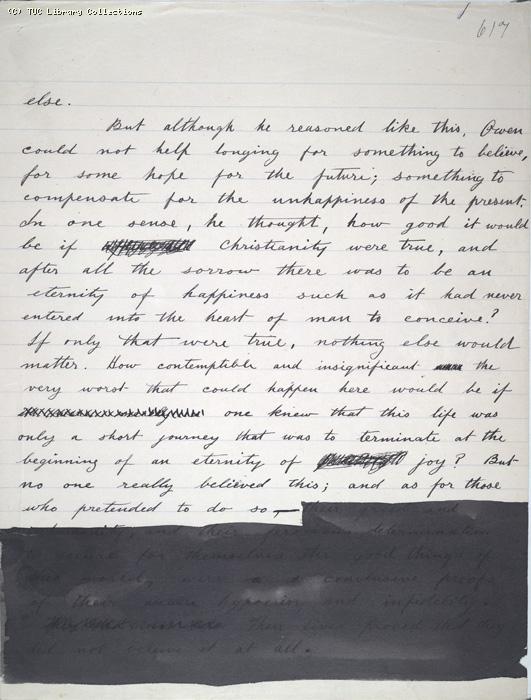 (C) TUC Library Collections
617
else.
But although he reasoned like this, Owen
could not help longing for something to believe,
for some hope for the future; something to
compensate for the unhappiness of the present.
In one sense, he thought, how good it would
be if Christianity were true, and
after all the sorrow there was to be an
eternity of happiness such as it had never
entered into the heart of man to conceive?
If only that were true, nothing else would
matter. How contemptible and insignificant the
very worst that could happen here would be if
one knew that this life was
only a short journey that was to terminate at the
beginning of an eternity of joy? But
no one really believed this; and as for those
who pretended to do so,— their and
and their determination
for themselves the good things of
this world, were conclusive proofs
of their hypocrisy and infidelity.
Their lives proved that they
did not believe it at all.